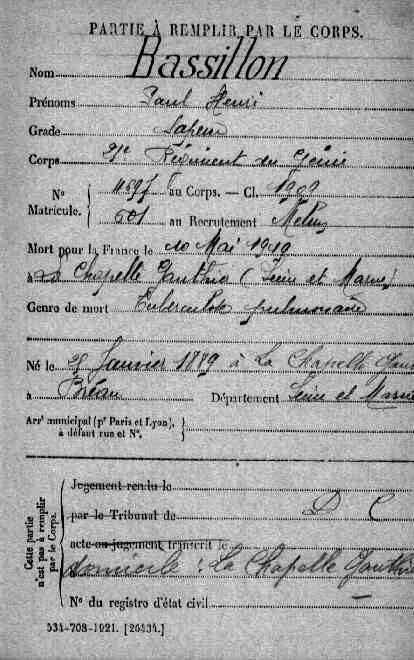 PARTIE À REMPLIR PAR LE CORPS.
Nom Bassillon
Prénoms Paul Henri
Grade Sapeur
Corps Régiment du Génie
N° 11597 au Corps. — Cl. 1909
Matricule. 501 au Recrutement Melun
Mort pour la France le 10 Mai 1919
a La Chapelle Gauthier (Seine et Marne)
Genre de mort Tuberculose pulmonaire
Né le Janvier 1889 à La Chapelle
à Bréau Département Seine et Marne
Arrt municipal (pr Paris et Lyon),
à défaut rue et N°.
Cette partie n'est pas à remplir par le Corps.
Jugement rendu le
par le Tribunal de D C
acte ou jugement transcrit le
domicile : La Chapelle Gauthier
N° du registro d'état civil
534-708-1921. [26434.]